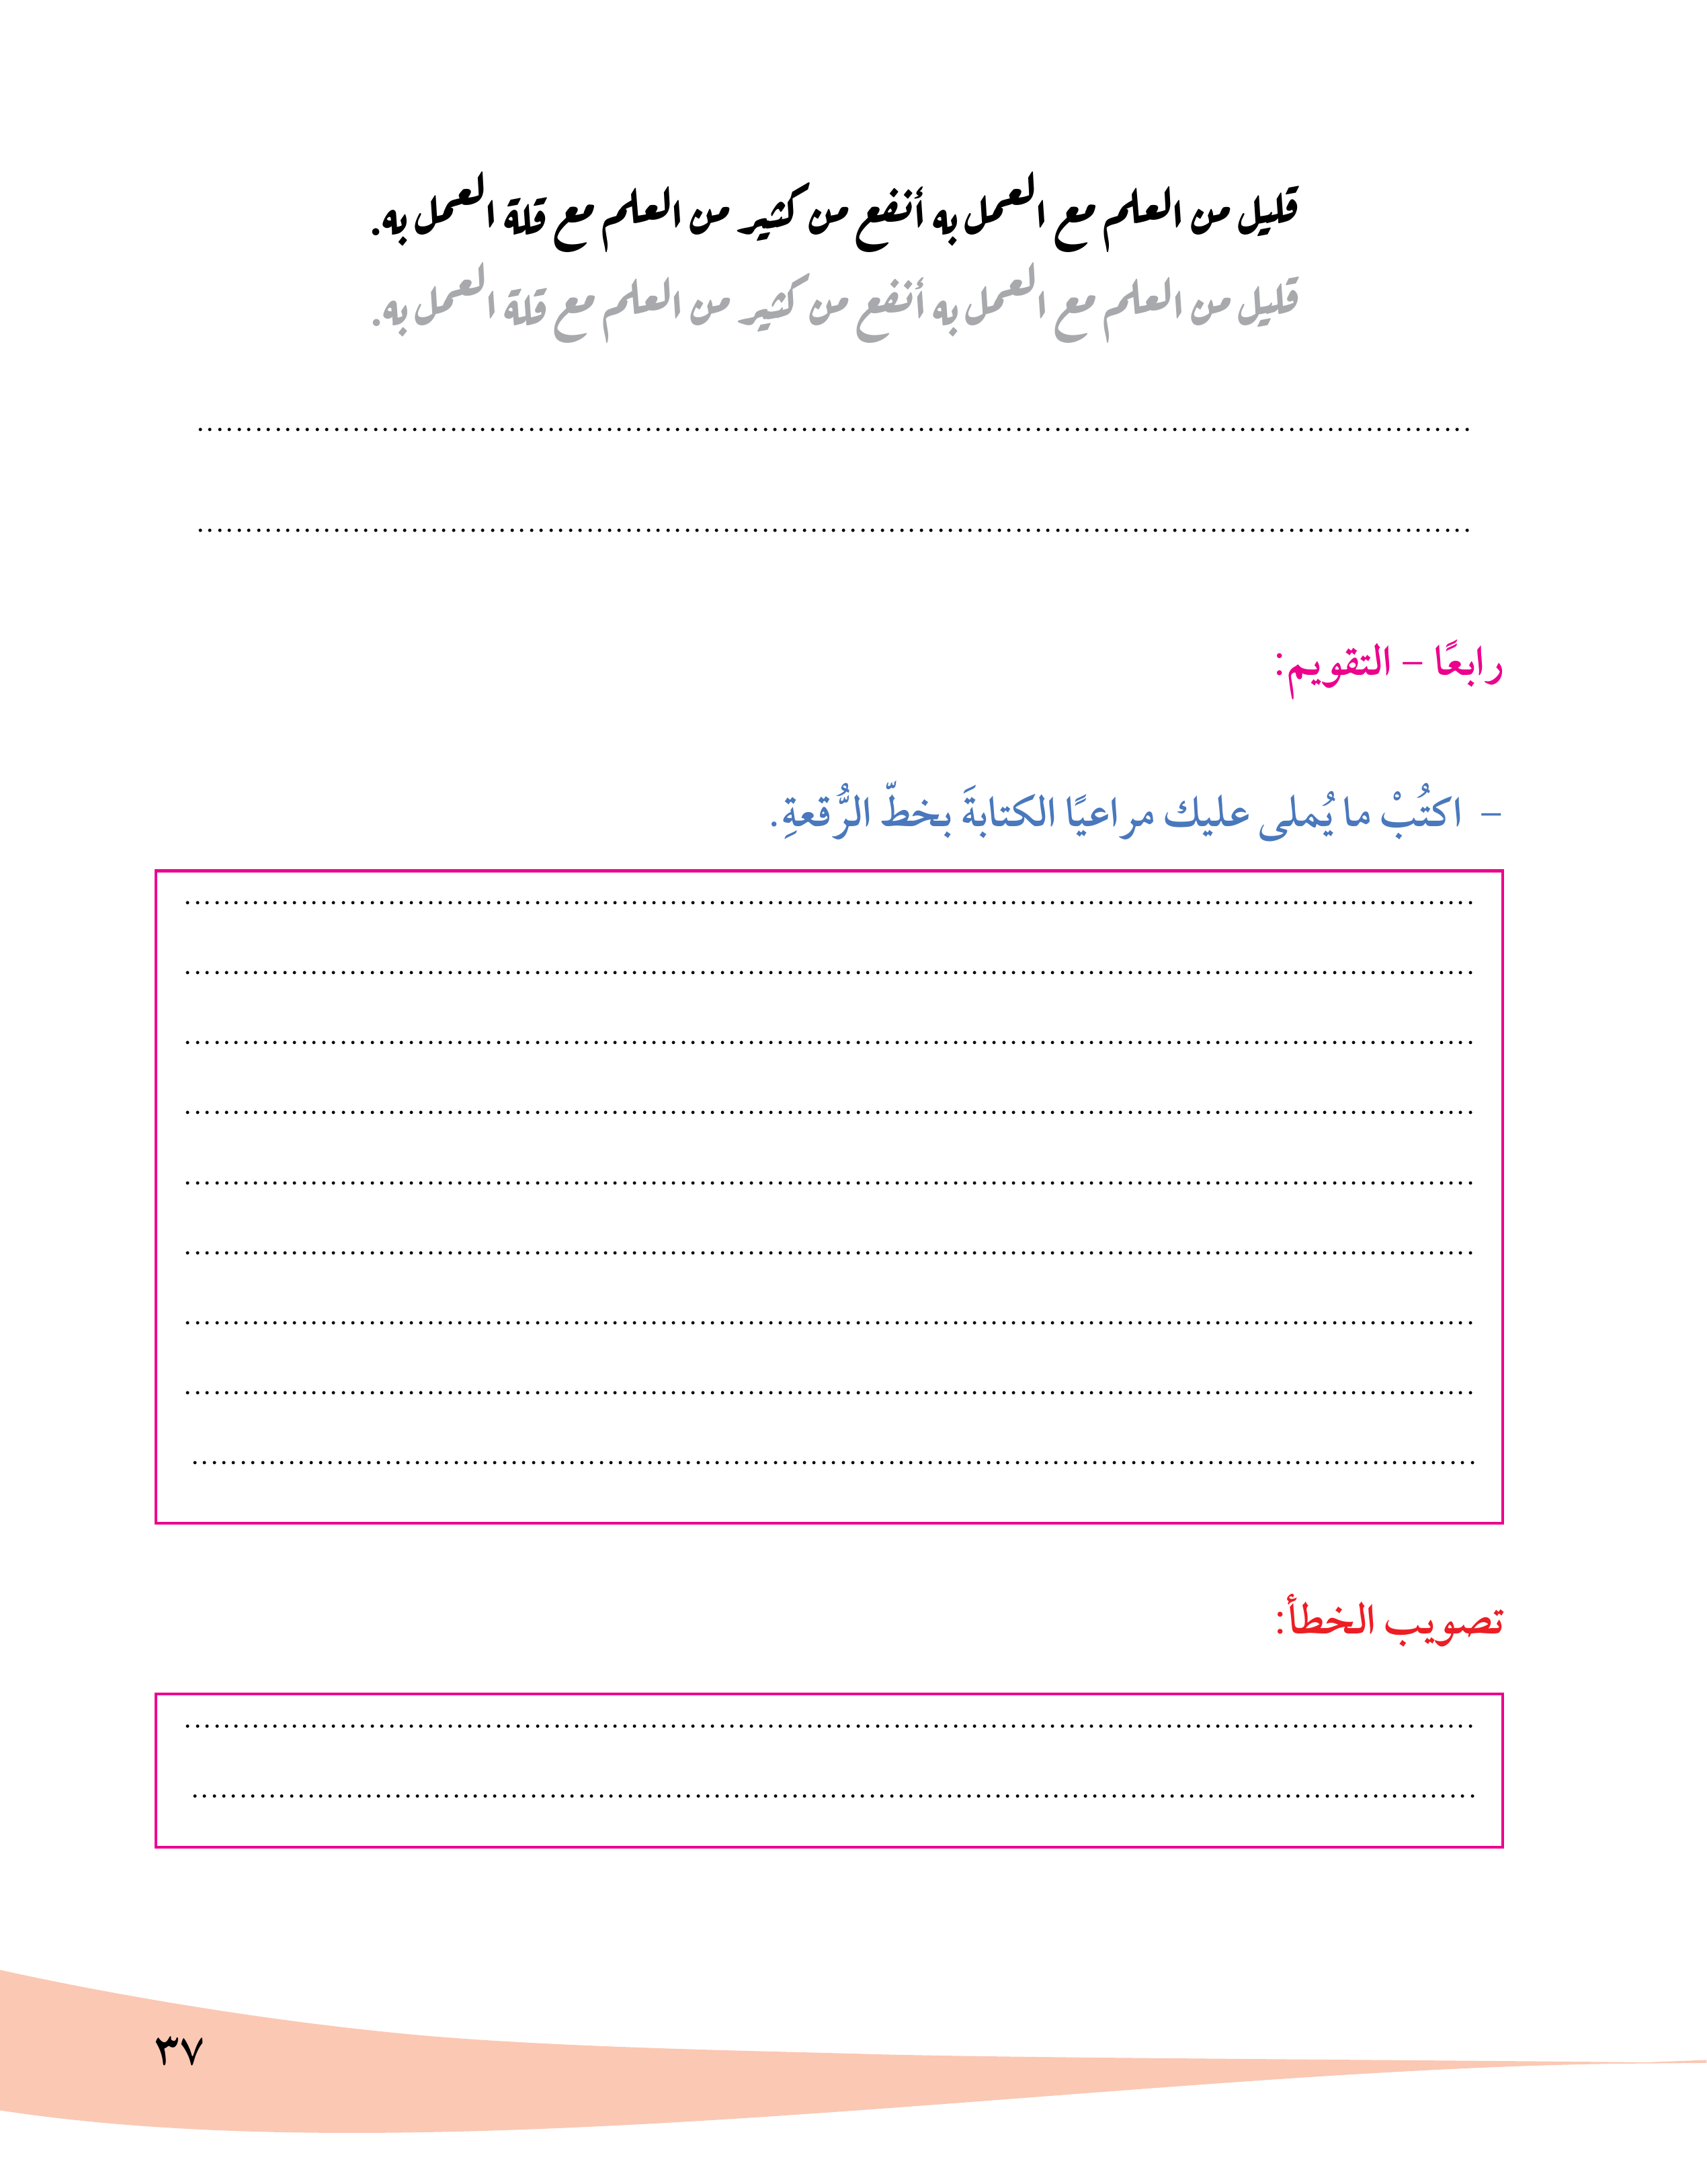 قليل من العلم مع العمل به أنفع من كثير من العلم مع قلة العمل به.
قليل من العلم مع العمل به أنفع من كثير من العلم مع قلة العمل به.
رابعًا – التقويم:
– اكتُبْ ما يُملى عليك مراعيًا الكتابةَ بخطّ الرُّقعةِ.
تصويب الخطأ:
٣٧